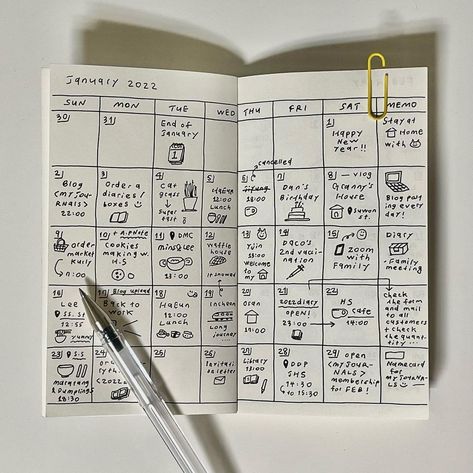 January 2022
SUN MON TUE WED THU FRI SAT MEMO
30
31
End of
January
1
1
Happy
New
Year!!
Stay at
Home
with
2
Blog
<MY JOUR-
NALS>
22:00
3
Order a
diaries/
boxes
4
cat
grass
Sugar
5
HaEun
12:00
Lunch
cancelled
6
7
Dan's
Birthday
8
vlog
Granny's
House
Suwon
st.
Blog pos-
ting every
day!
9
order
market
Kurly
11:00
10
Cookies
making w.
H.S
11
DMC
Minj&Lee
18:30
12
Waffle
house
It snowed
13
Yujin
welcome
to my
14
Daco's
2nd vacci-
nation
15
zoom
with
Family
Diary
-Family
meeting
16
Lee
S.S. St
12:55
yummy
17
Blog upload
Back to
work
18
HaEun
12:00
Lunch
19
Incheon
Long
journey
20
19:00
21
OPEN!
23:00
22
HS
cafe
14:00
check
the form
and mail
to all
customers
+ Check
the quant-
ity
23
S.S
malatang
& Dumplings
18:30
24
<2022
25
26
27
Library
13:00
28
DDP
SHS
14:30
to 15:30
29
open
<MY JOUR-
NALS>
membership
for FEB!
Namecard
for